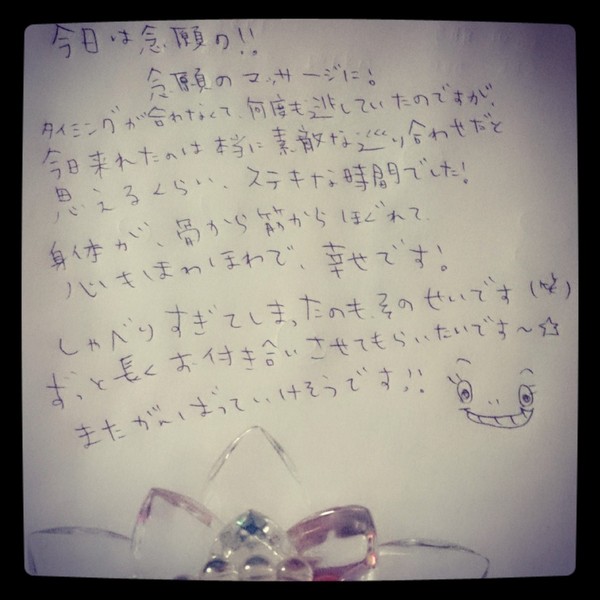 今日は念願の!!
念願のマッサージに!
タイミングが合わなくて、何度も逃していたのですが、
今日来れたのは本当に素敵な巡り合わせだと
思えるくらい、ステキな時間でした!
身体が、骨から筋からほぐれて
心もほわほわで、幸せです!
しゃべりすぎてしまったのも、そのせいです(笑)
ずっと長くお付き合いさせてもらいたいです〜☆
またがんばっていけそうです!!